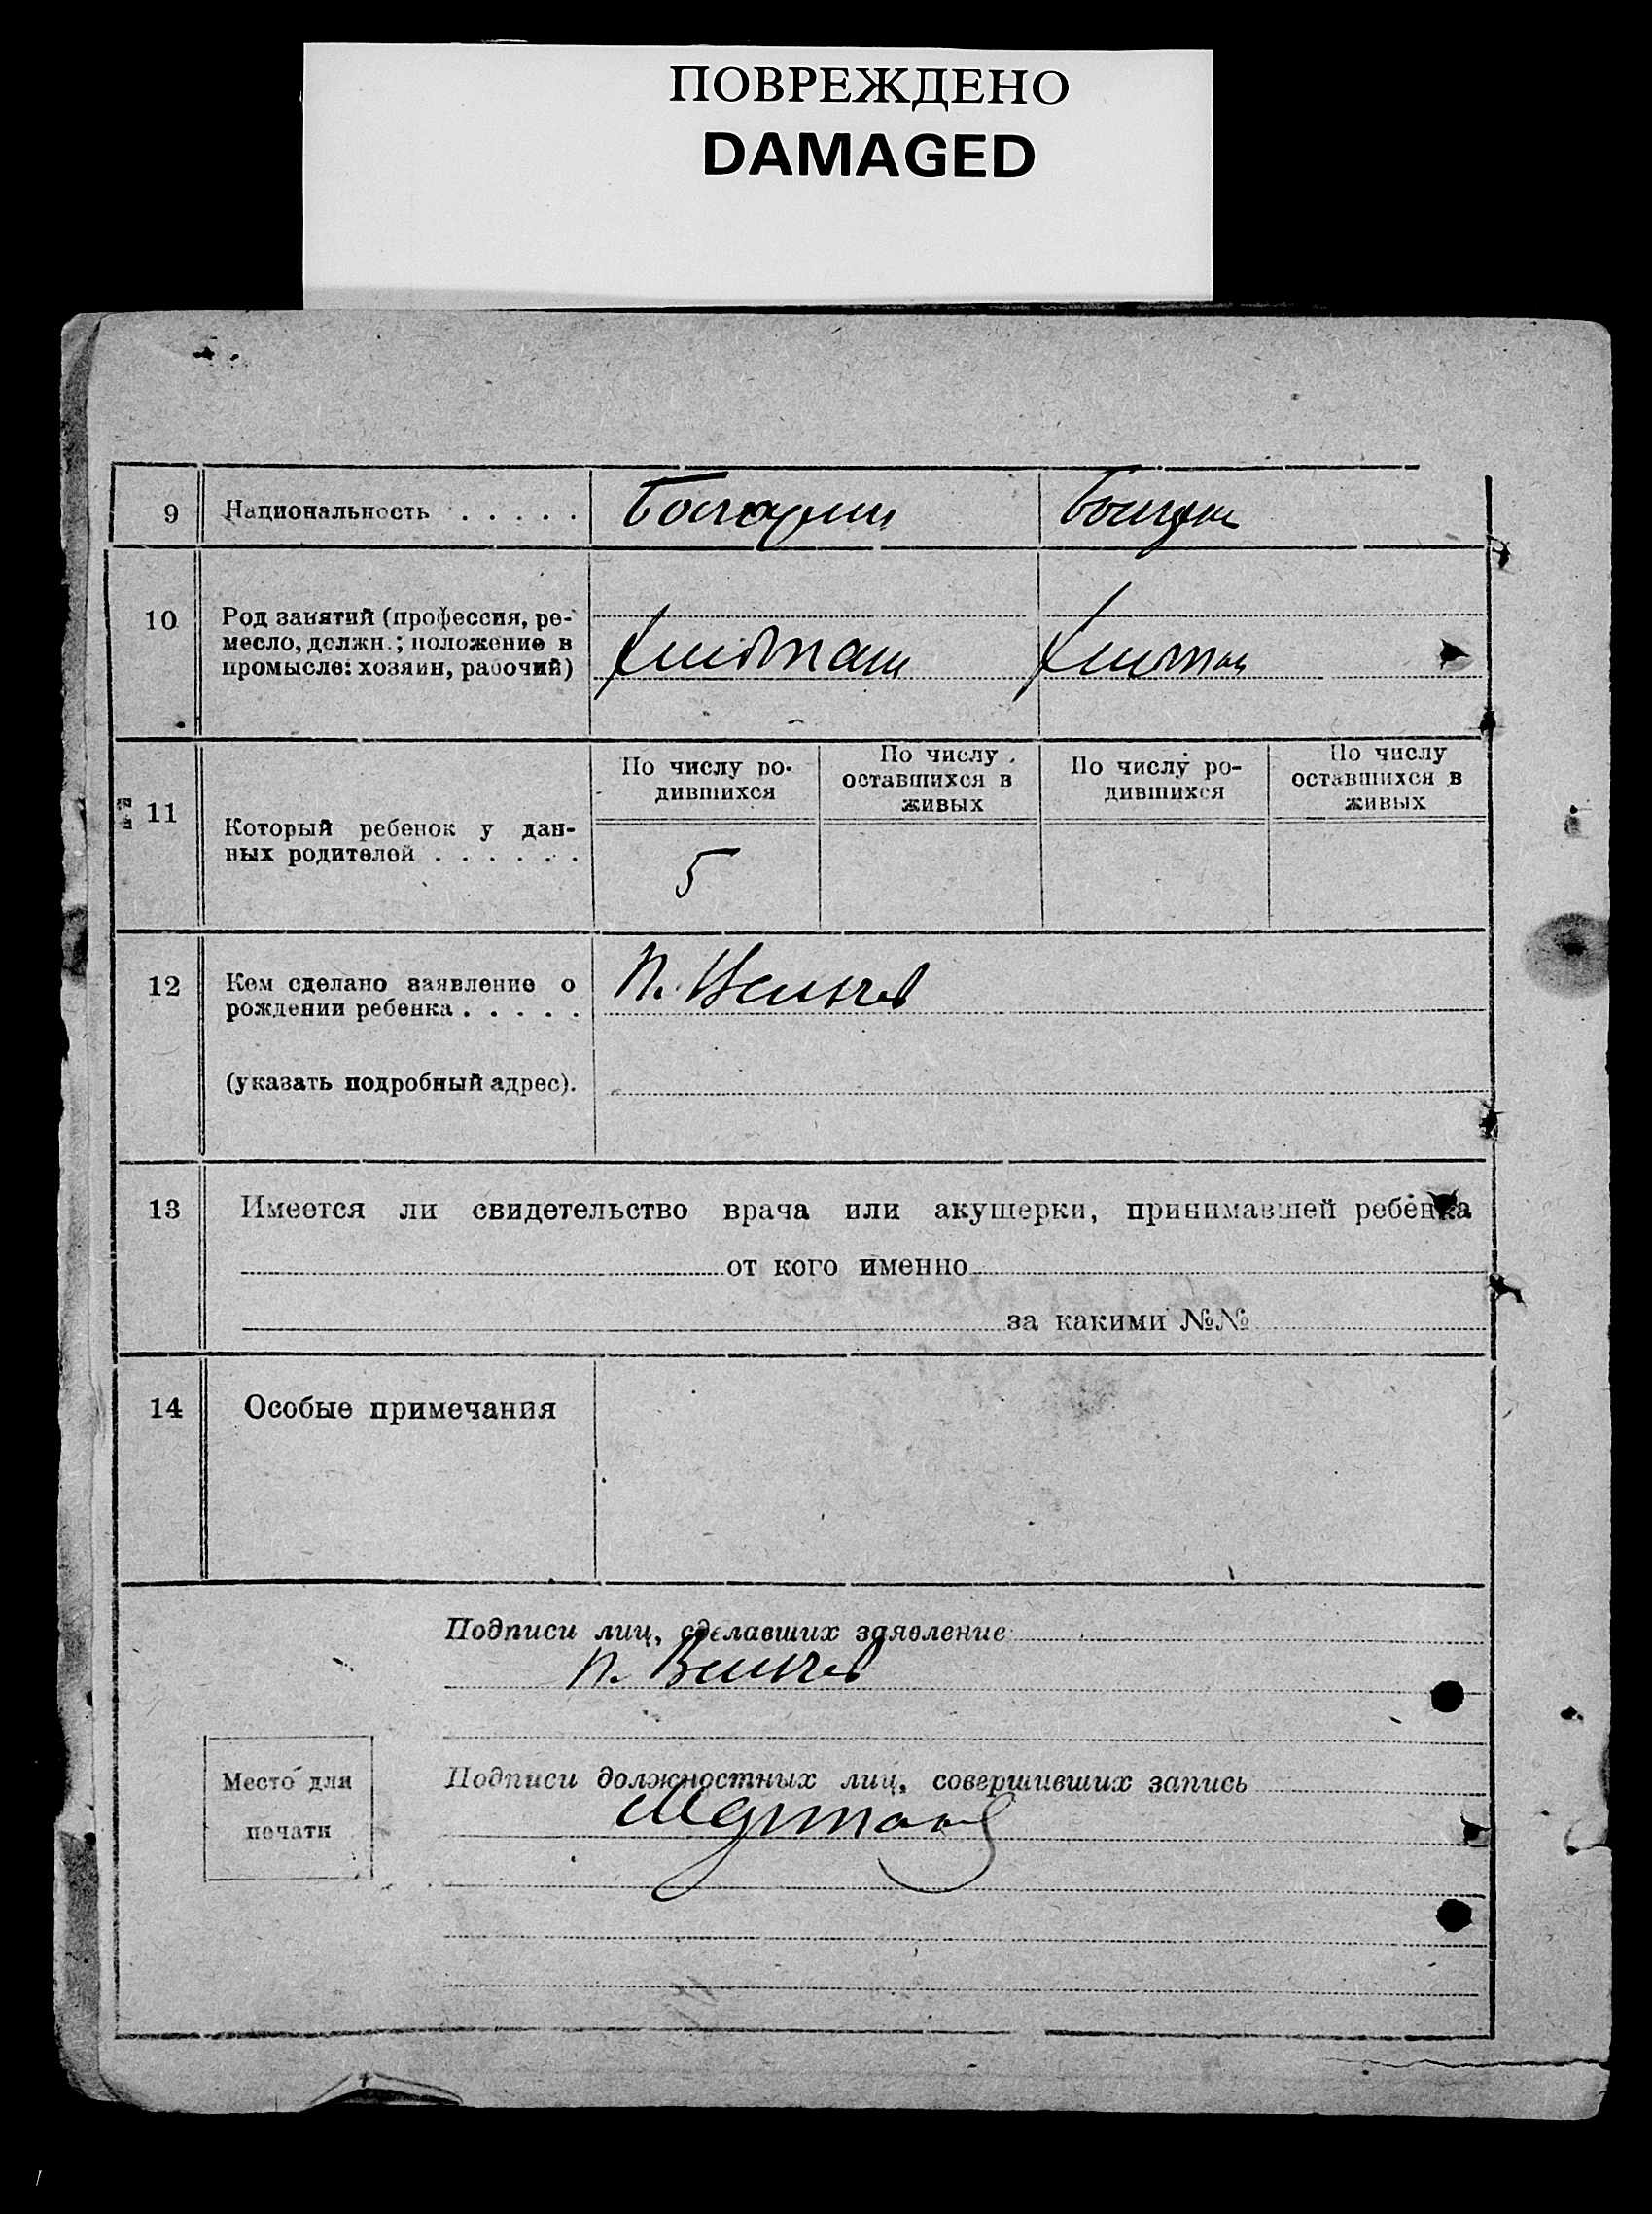 ПОВРЕЖДЕНО
DAMAGED
9 Национальность . . . . . Болгарин
10 Род занятий (профессия, ре-
месло, должн.; положение в
промысле: хозяин, рабочий)
11 Который ребенок у дан-
ных родителей . . . . . .
По числу ро-
дившихся
По числу
оставшихся в
живых
По числу ро-
дившихся
По числу
оставшихся в
живых
5
12 Кем сделано заявление о
рождении ребенка . . . . .
П. Вельчев
(указать подробный адрес).
13 Имеется ли свидетельство врача или акушерки, принимавшей ребенка
от кого именно
за какими №№
14 Особые примечания
Подписи лиц, сделавших заявление
П. Вельчев
Место для
печати
Подписи должностных лиц, совершивших запись